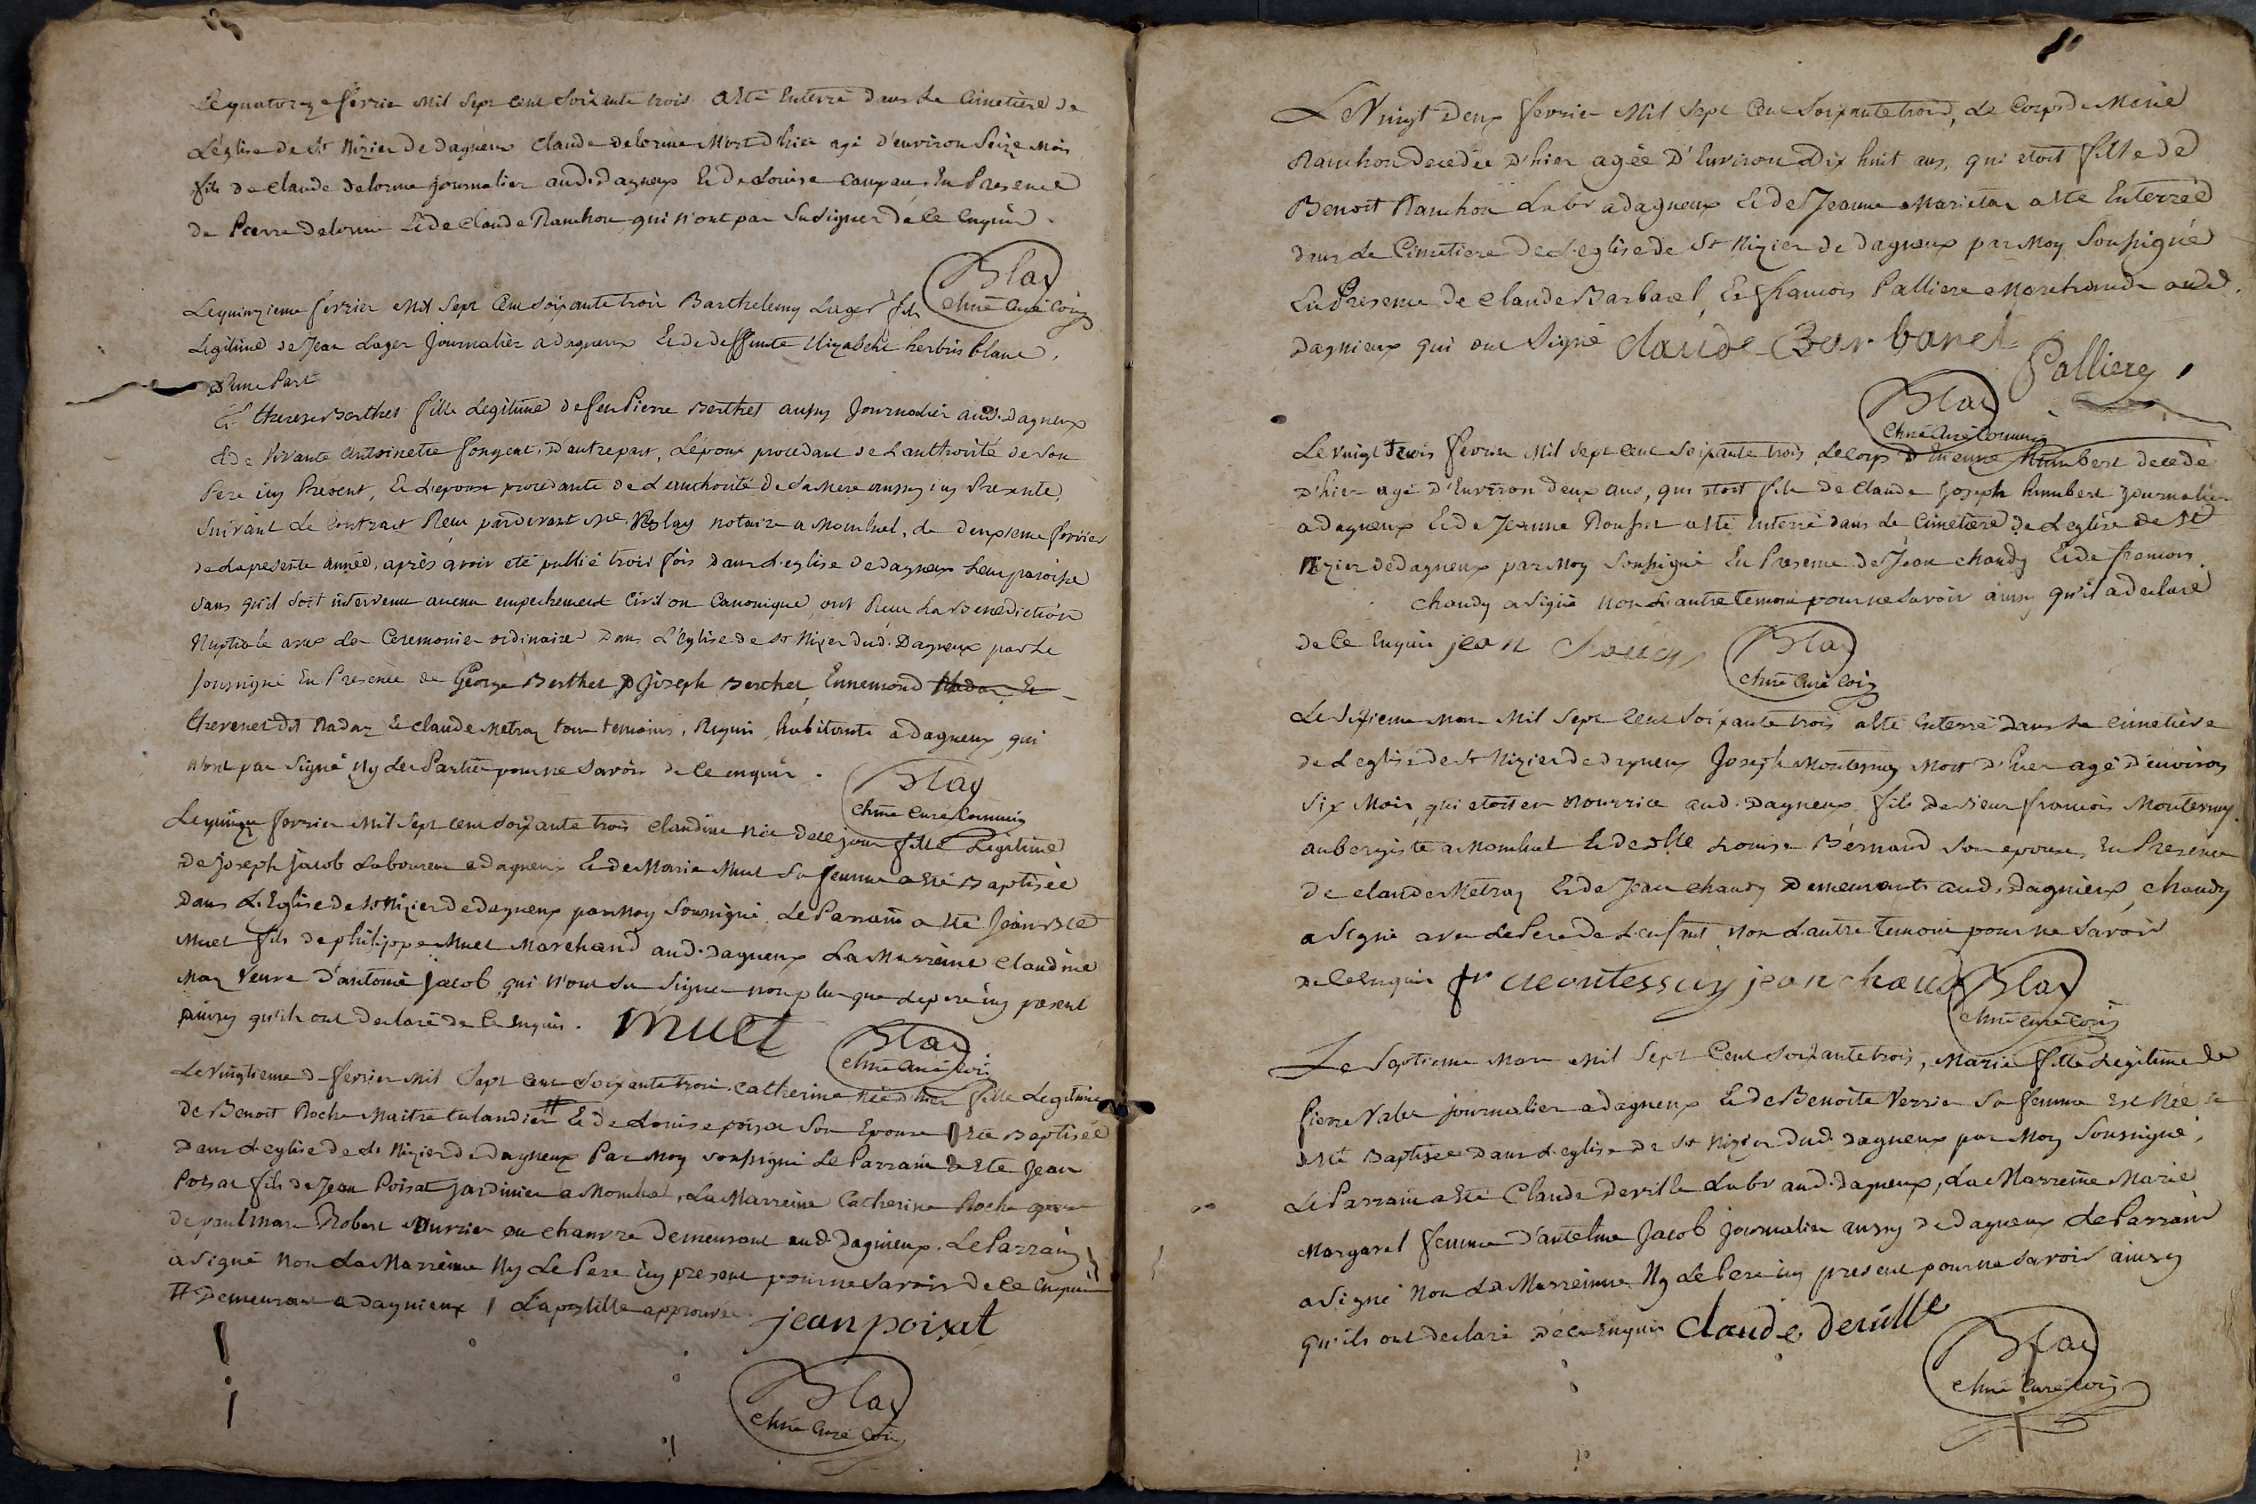 Le quatorze fevrier Mil Sept Cent Soixante trois a été Enterré dans Le Cimetière de
L'église de St Nizier de dagneux Claude delorme Mort d'hier agé d'environ Seize Mois
fils de Claude delorme journalier aud. dagneux Et de Louise en Presence
de Pierre delorme Et de Claude Ranchon qui n'ont pas Su Signer de Ce Enquis.
Blay
Chne Curé Com
Le quinzieme fevrier Mil Sept Cent Soixante trois Barthelemy Lager fils
Legitime de Jean Lager Journalier a dagneux Et de deffunte Elizabeth herbin blanc,
d'Une Part
Et therese Berthet fille Legitime de feu Pierre Berthet aussy Journalier aud. dagneux
Et de Vivante Antoinette D'autre part, L'époux procedant de L'authorité de Son
Pere icy Present, Et L'epouse procedante de L'authorité de Sa Mere aussy icy Presente,
Suivant Le Contract Reçu pardevant Me Blay notaire a Montluel, Le deuxieme fevrier
de La presente année, après avoir eté publié trois fois dans L'eglise de dagneux Leur paroisse
Sans qu'il Soit intervenu aucun empechement Civil ou Canonique ont Reçu La Benediction
Nuptiale avec Les Ceremonies ordinaires Dans L'Eglise de St Nizier dud. Dagneux par Le
Soussigné En Presence de George Berthet Joseph Berthet Ennemond
thevenet dit Nadaz Et Claude Metraz tous temoins, Requis, habitants a dagneux qui
n'ont pas Signé Ny Les Parties pour ne Savoir de Ce enquis.
Blay
Chne Curé Commis
Le quinze fevrier Mil Sept Cent Soixante trois Claudine Née de Ce jour fille Legitime
de Joseph Jacob Laboureur a dagneux Et de Marie Muet Sa femme a Eté Baptisée
Dans L'Eglise de St Nizier de dagneux par Moy Soussigné. Le Parrain a Eté Jean Bte
Muet fils de philippe Muet Marchand aud. dagneux La Marreine Claudine
Veuve D'antoine Jacob qui N'ont Su Signer non plus que Le pere icy present
ainsy qu'ils ont declaré de Ce Enquis. Muet
Blay
Chne Curé Com
Le Vingtieme fevrier Mil Sept Cent Soixante trois Catherine Née d'hier fille Legitime
de Benoit Roche Maitre # Et de Louise poisat Son Epouse a Eté Baptisée
Dans L'eglise de St Nizier de Dagneux Par Moy Soussigné Le Parrain a Eté Jean
Poisat fils de Jean Poisat jardinier a Montluel, La Marreine Catherine Roche
de Robert ouvrier en chanvre Demeurant aud. Dagnieux. Le Parrain
a Signé Non La Marreine Ny Le Pere icy present pour ne Savoir de Ce Enquis
# Demeurant a Dagnieux / L'apostille approuvée. jean poisat
Blay
Chne Curé Com
Le Vingt Deux fevrier Mil Sept Cent Soixante trois, Le Corps de Marie
Ranchon decedée D'hier agée D'Environ Dix huit ans, qui etoit fille de
Benoit Ranchon Labr a dagneux Et de Jeanne a Eté Enterrée
dans Le Cimetiere de L'eglise de St Nizier de dagneux par Moy Soussigné
En Presence de Claude Barbaret Et francois Palliere Marchands aud.
Dagnieux qui ont Signé Claude Barbaret
Palliere
Blay
Chne Curé Commis
Le vingt trois fevrier Mil Sept Cent Soixante trois, Le Corps d'Etienne Humbert decedé
D'hier agé D'Environ deux ans, qui etoit fils de Claude Joseph humbert Journalier
a dagneux Et de Jeanne a Eté Enterré dans Le Cimetiere de L'eglise de St
Nizier de Dagneux par Moy Soussigné En Presence de Jean chaudy Et de francois.
Chaudy a Signé non L'autre temoin pour ne Savoir ainsy qu'il a declaré
de Ce Enquis jean chaudy
Blay
Chne Curé Com
Le Sixieme Mars Mil Sept Cent Soixante trois a Eté Enterré Dans Le Cimetière
de L'eglise de St Nizier de dagneux Joseph Montessuy Mort D'hier agé D'environ
Six Mois, qui etoit en Nourrice aud. Dagneux, fils de Sieur francois Montessuy
aubergiste a Montluel Et de Dlle Louise Bernard Son epouse, En Presence
de Claude Metraz Et de Jean chaudy Demeurants aud. Dagnieux, chaudy
a Signé avec Le Pere de L'enfant Non L'autre temoin pour ne Savoir
de Ce Enquis fr montessuy jean chaudy
Blay
Chne Curé Com
Le Septieme Mars Mil Sept Cent Soixante trois, Marie fille Legitime de
Pierre journalier a dagneux Et de Benoite Verrier Sa femme Est Née Et
a Eté Baptisée Dans L'eglise de St Nizier Dud. Dagneux par Moy Soussigné,
Le Parrain a Eté Claude Deville Labr aud. Dagneux, La Marreine Marie
Margaret femme D'antelme Jacob journalier aussy de dagneux Le Parrain
a Signé Non La Marreine Ny Le Pere icy present pour ne Savoir ainsy
qu'ils ont declaré de Ce Enquis Claude deville
Blay
Chne Curé Com